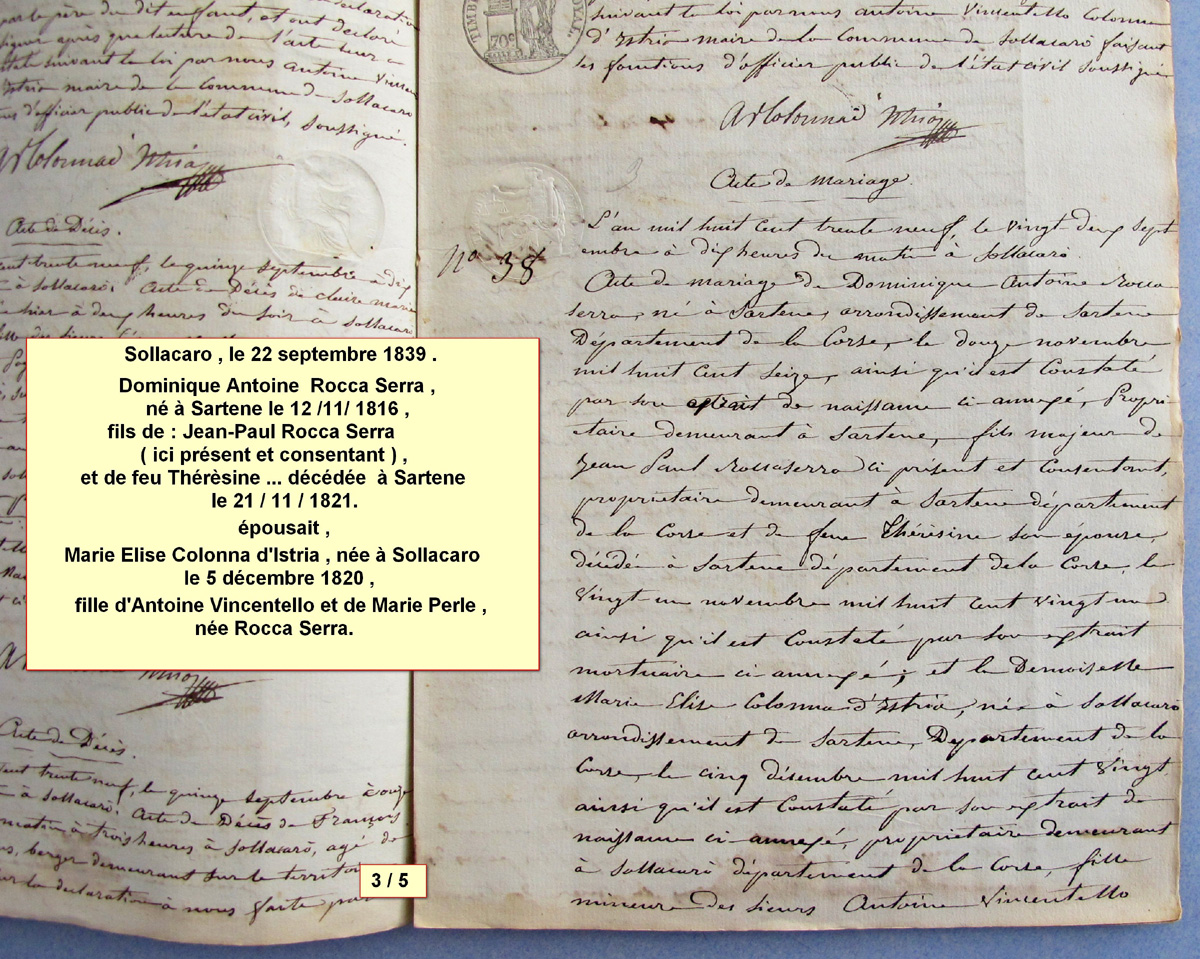 par le père du dit enfant, et ont déclaré
signer après que lecture de l'acte leur a
suivant la loi par nous Antoine Vincen
Istria maire de la Commune de Sollacaro
d'officier public de l'état civil, soussigné.
Acte de Décès.
cent trente neuf, le quinze septembre à dix
à Sollacarò. Acte de Décès de Claire Marie
hier à deux heures du soir à Sollacarò
Acte de Décès
cent trente neuf, le quinze septembre à onze
à Sollacarò. Acte de Décès de François
matin à trois heures à Sollacarò, agé de
berger demeurant sur le territoi
sur la declaration à nous faite par
TIMB
ROYAL
70c
suivant la loi par nous antoine Vincentello Colonna
d'Istria maire de la Commune de Sollacarò faisant
les fonctions d'officier public de l'état civil soussigné
AVColonnad'Istria
Acte de Mariage.
No 38
L'an mil huit cent trente neuf, le vingt deux Sept
embre à dix heures du matin à Sollacarò.
Acte de mariage de Dominique Antoine Rocca
serra, né à Sartene, arrondissement de Sartene
Département de la Corse, le douze novembre
mil huit cent seize, ainsi qu'il est Constaté
par son extrait de naissance ci-annexé, Propri
étaire demeurant à Sartene, fils majeur de
Jean Paul Roccaserra ci présent et Consentant,
propriétaire demeurant à Sartene département
de la Corse et de feue Thérèsine son épouse,
décédée à Sartene département de la Corse, le
Vingt un novembre mil huit Cent Vingt un
ainsi qu'il est Constaté par son extrait
mortuaire ci annexé; et la Demoiselle
Marie Elise Colonna d'Istria, née à Sollacarò
arrondissement de Sartene, Departement de la
Corse, le cinq désembre mil huit cent Vingt
ainsi qu'il est Constaté par son extrait de
naissance ci-annexé, propriétaire demeurant
à Sollacarò département de la Corse, fille
mineure des sieurs Antoine Vincentello
Sollacaro , le 22 septembre 1839 .
Dominique Antoine Rocca Serra ,
né à Sartene le 12 /11/ 1816 ,
fils de : Jean-Paul Rocca Serra
( ici présent et consentant ) ,
et de feu Thérèsine ... décédée à Sartene
le 21 / 11 / 1821.
épousait ,
Marie Elise Colonna d'Istria , née à Sollacaro
le 5 décembre 1820 ,
fille d'Antoine Vincentello et de Marie Perle ,
née Rocca Serra.
3 / 5